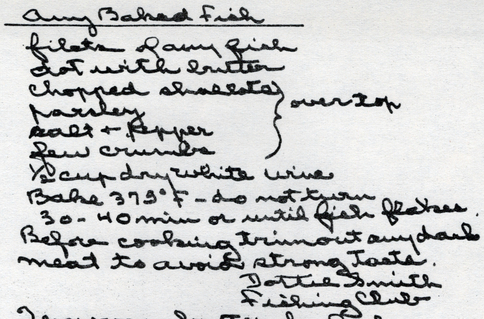 Any Baked Fish
filets of any fish
dot with butter
chopped shallots
parsley
over top
salt + pepper
few crumbs
1/2 cup dry white wine
Bake 375°F - do not turn
30-40 min or until fish flakes.
Before cooking trim out any dark
meat to avoid strong taste.
Dottie Smith
Fishing Club